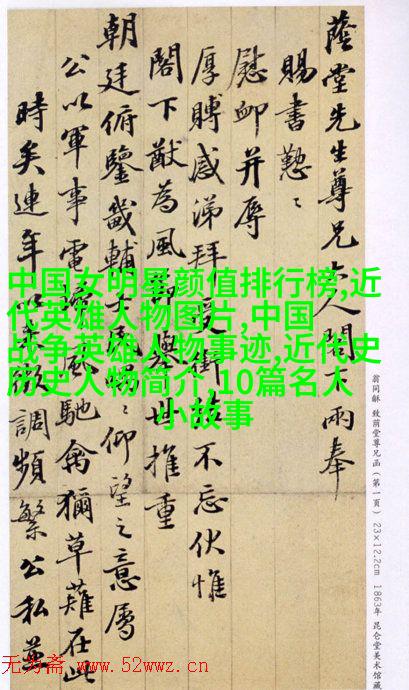 蔭堂先生尊兄大人閣下兩奉
賜書懃〻
慰卹并辱
厚賻感涕拜受不忘伏惟
閣下猷為風節舉世推重
朝廷俯鑒畿輔士民喁〻仰望之意屬
公以軍事電掃風馳禽獮草薙在此
時矣連年以來徵調頻繁公私並
翁同龢 致蔭堂尊兄函（第一頁） 23×12.2cm 1863年 昆仑堂美术馆藏
中国女明星颜值排行榜,近
代英雄人物图片,中国
战争英雄人物事迹,近代史
历史人物简介,10篇名人
小故事
无为斋 www.52wwz.cn